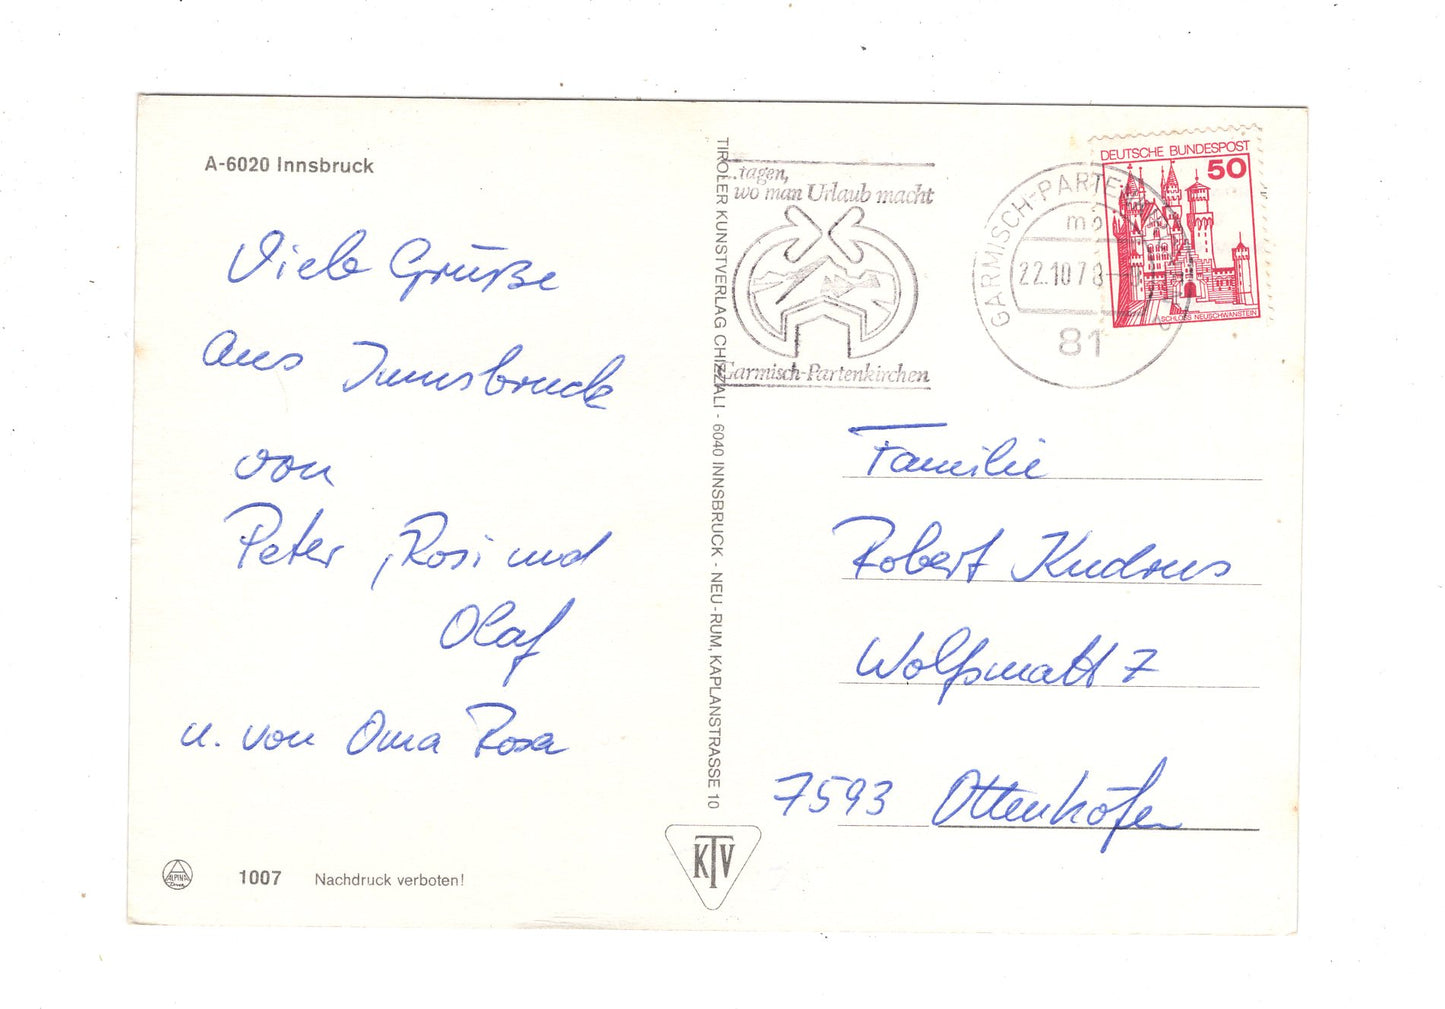 A-6020 Innsbruck
Viele Grüße
aus Innsbruck
von
Peter, Rosi und
Olaf
u. von Oma Rosa
1007 Nachdruck verboten!
TIROLER KUNSTVERLAG CHIZZALI - 6040 INNSBRUCK - NEU-RUM, KAPLANSTRASSE 10
KTV
...tagen,
wo man Urlaub macht
Garmisch-Partenkirchen
22.10.78
81
DEUTSCHE BUNDESPOST
50
SCHLOSS NEUSCHWANSTEIN
Familie
Robert Kudrus
Wolfsmatt 7
7593 Ottenhöfen